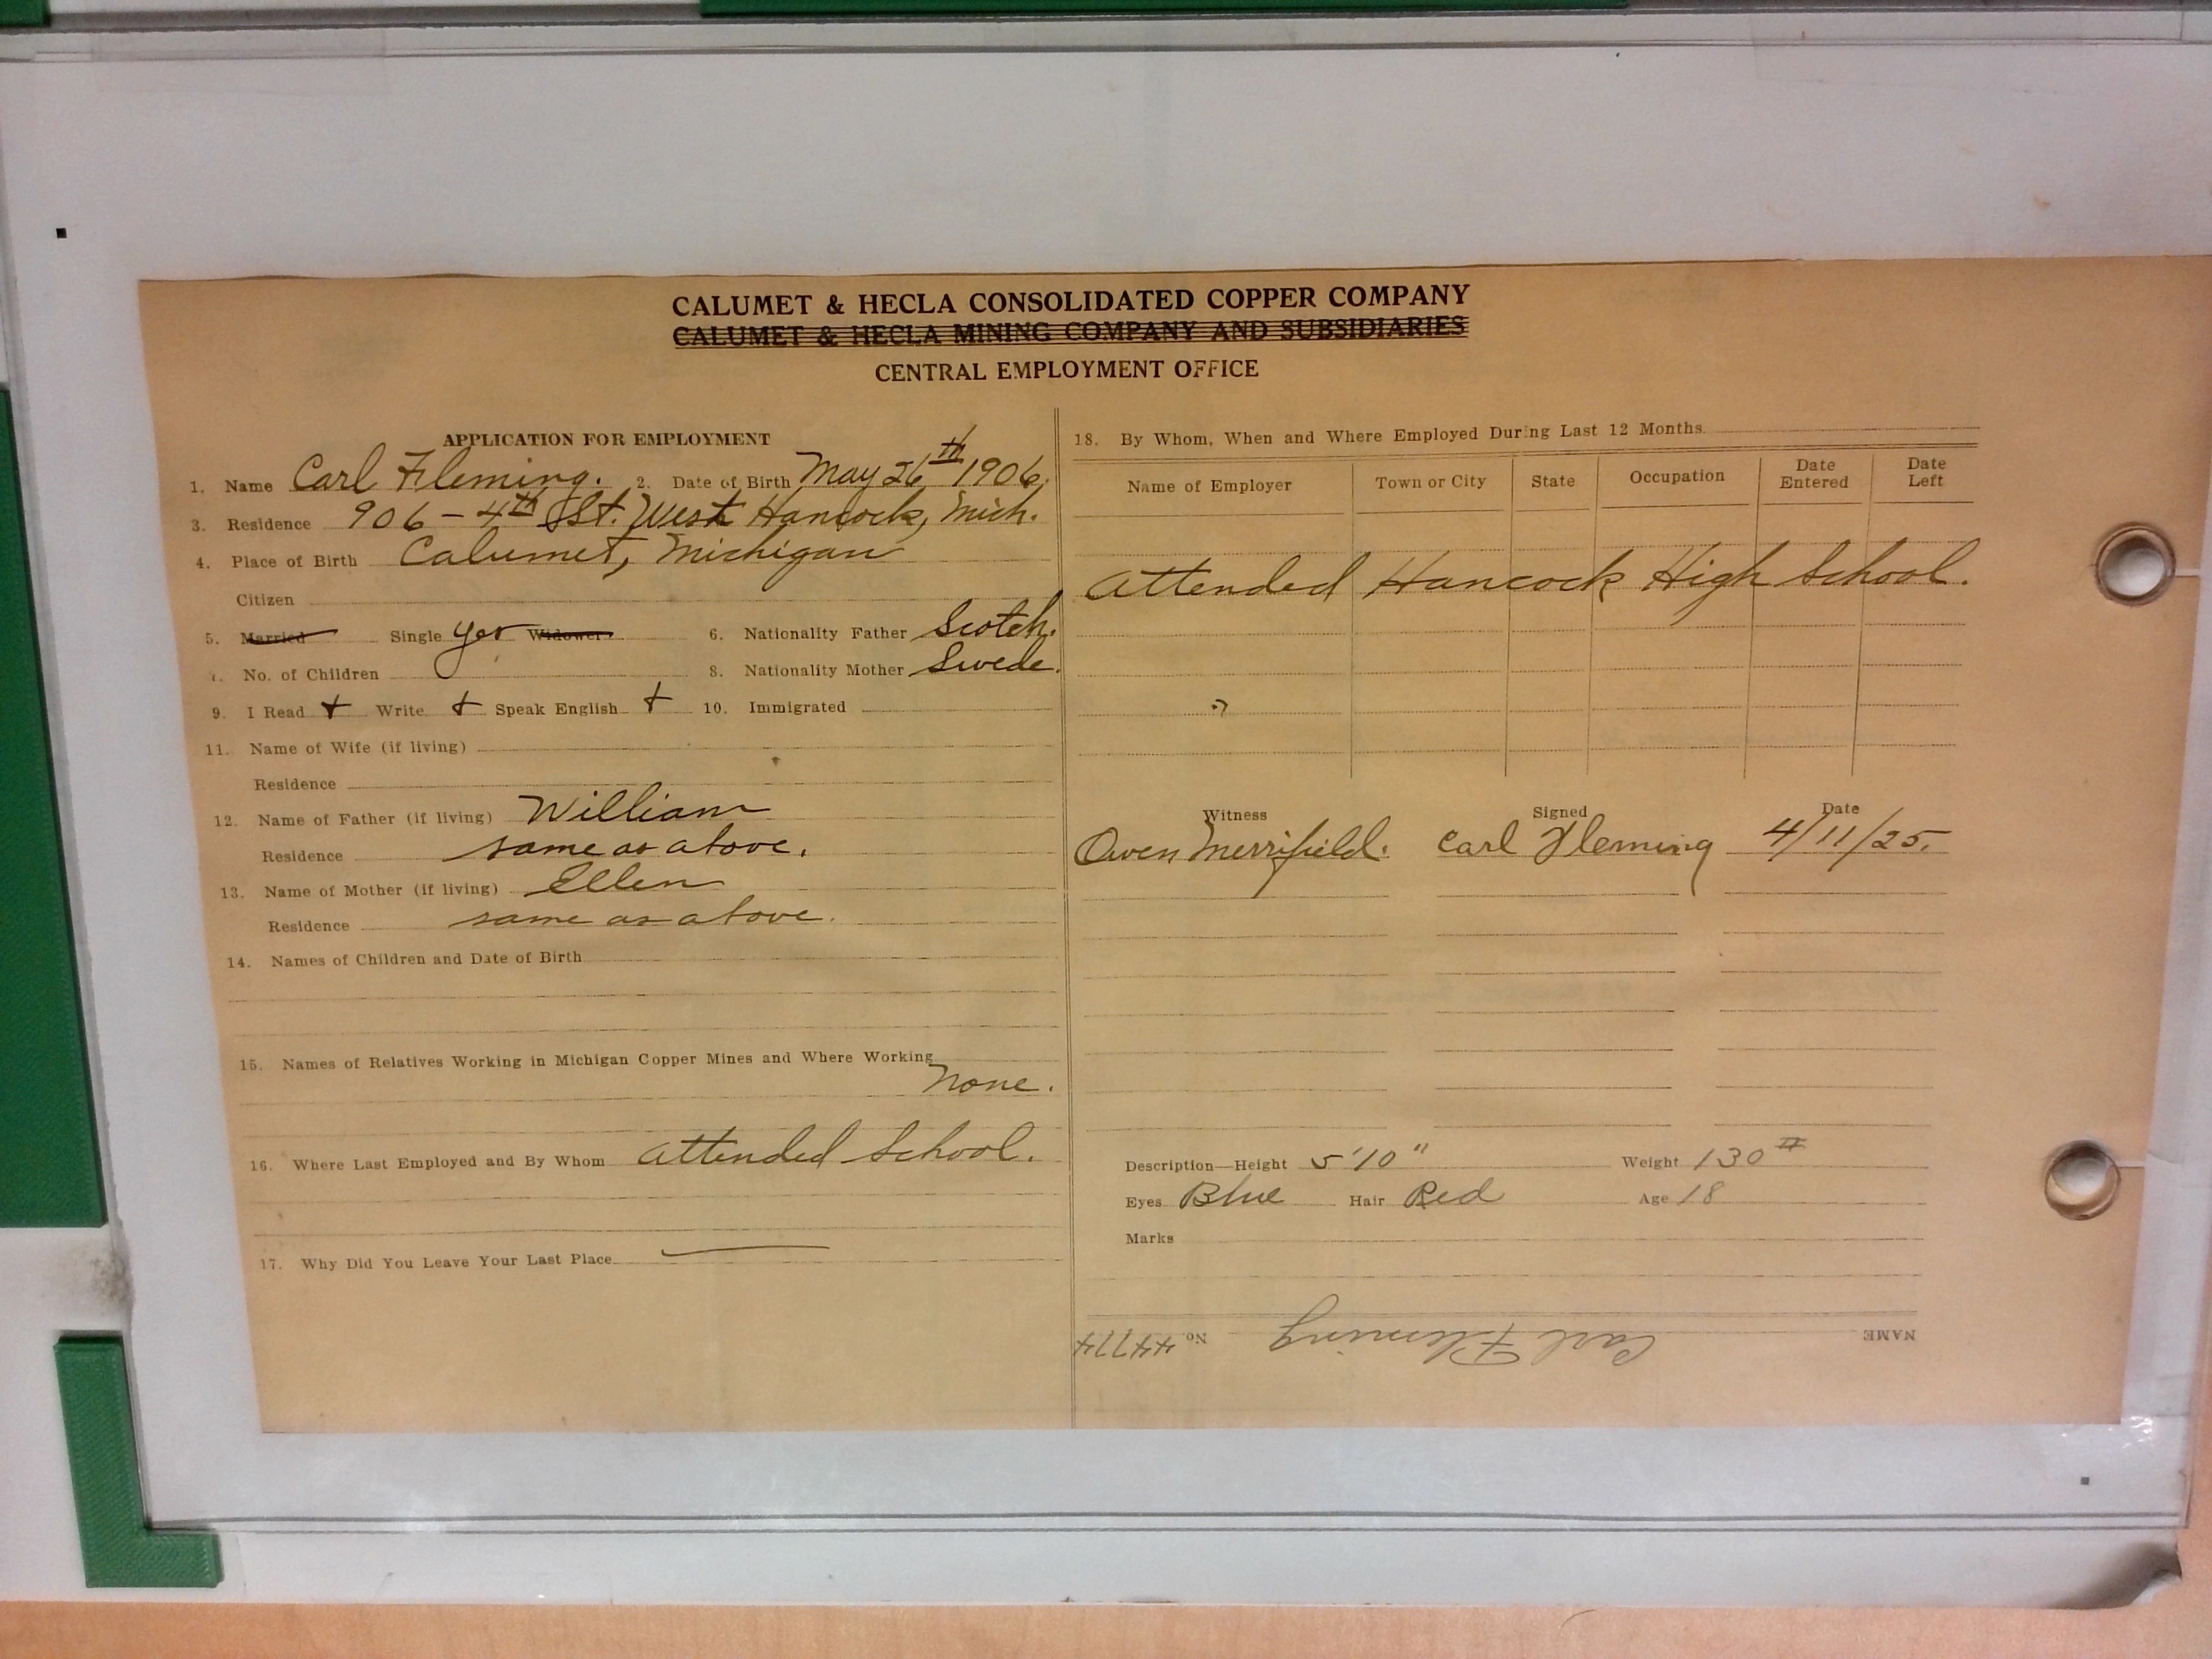 CALUMET & HECLA CONSOLIDATED COPPER COMPANY
CALUMET & HECLA MINING COMPANY AND SUBSIDIARIES
CENTRAL EMPLOYMENT OFFICE
APPLICATION FOR EMPLOYMENT
1. Name Carl Fleming. 2. Date of Birth May 26th 1906
3. Residence 906 - 4th St. West Hancock, Mich.
4. Place of Birth Calumet, Michigan
Citizen
5. Married Single yes Widower 6. Nationality Father Scotch.
7. No. of Children 8. Nationality Mother Swede.
9. I Read + Write + Speak English + 10. Immigrated
11. Name of Wife (if living)
Residence
12. Name of Father (if living) William
Residence same as above.
13. Name of Mother (if living) Ellen
Residence same as above.
14. Names of Children and Date of Birth
15. Names of Relatives Working in Michigan Copper Mines and Where Working
None.
16. Where Last Employed and By Whom Attended School.
17. Why Did You Leave Your Last Place
18. By Whom, When and Where Employed During Last 12 Months
Name of Employer Town or City State Occupation Date Entered Date Left
Attended Hancock High School.
Witness Signed Date
Owen Merrifield. Carl Fleming 4/11/25.
Description—Height 5'10" Weight 130 #
Eyes Blue Hair Red Age 18
Marks
NAME Carl Fleming No. 44774